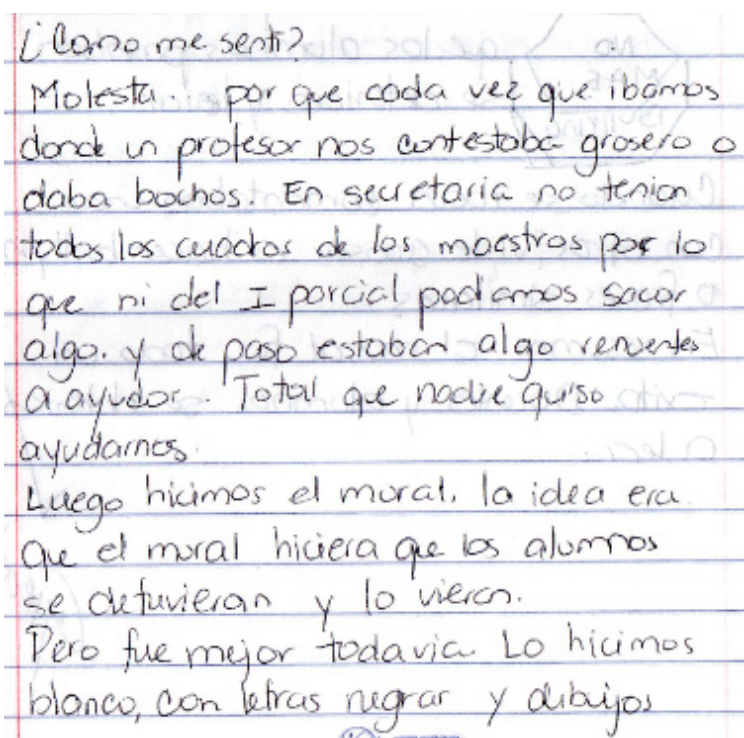 ¿Como me senti?
Molesta. por que cada vez que ibamos
donde un profesor nos contestaba grosero o
daba bochos. En secretaria no tenian
todos los cuadros de los maestros por lo
que ni del I parcial podiamos sacar
algo. y de paso estaban algo renuentes
a ayudar. Total que nadie quiso
ayudarnos.
Luego hicimos el mural. la idea era
que el mural hiciera que los alumnos
se detuvieran y lo vieran.
Pero fue mejor todavia. Lo hicimos
blanco, con letras negras y dibujos